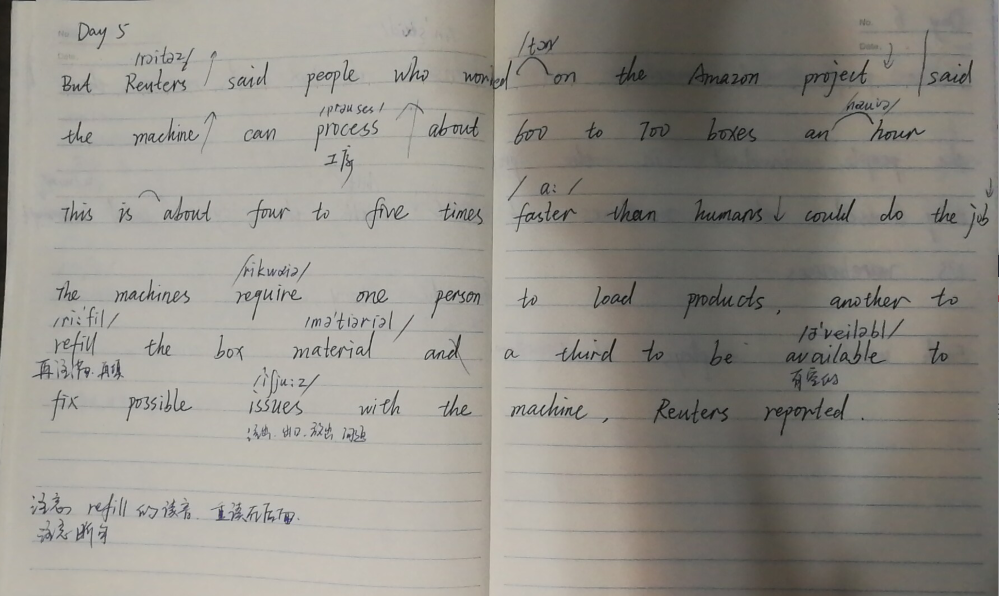 Day 5
/tən
/rɔitəz/
But Reuters said people who worked on the Amazon project said
/prəuses/ /hauə/
the machine can process about 600 to 700 boxes an hour
工序
/ a: /
This is about four to five times faster than humans could do the job
/rikwaiə/
The machines require one person to load products, another to
/ri:'fil/ /mə'tiəriəl/ /ə'veiləbl/
refill the box material and a third to be available to
再注满.再填 有空的
/'iʃju:z/
fix possible issues with the machine, Reuters reported.
流出.出口.放出 问题
注意 refill 的读音.重读在后面.
注意断句